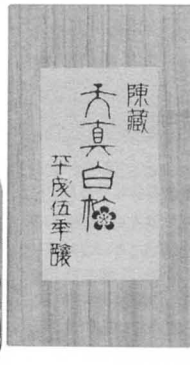 陳藏
天真白梅
平成伍年醸